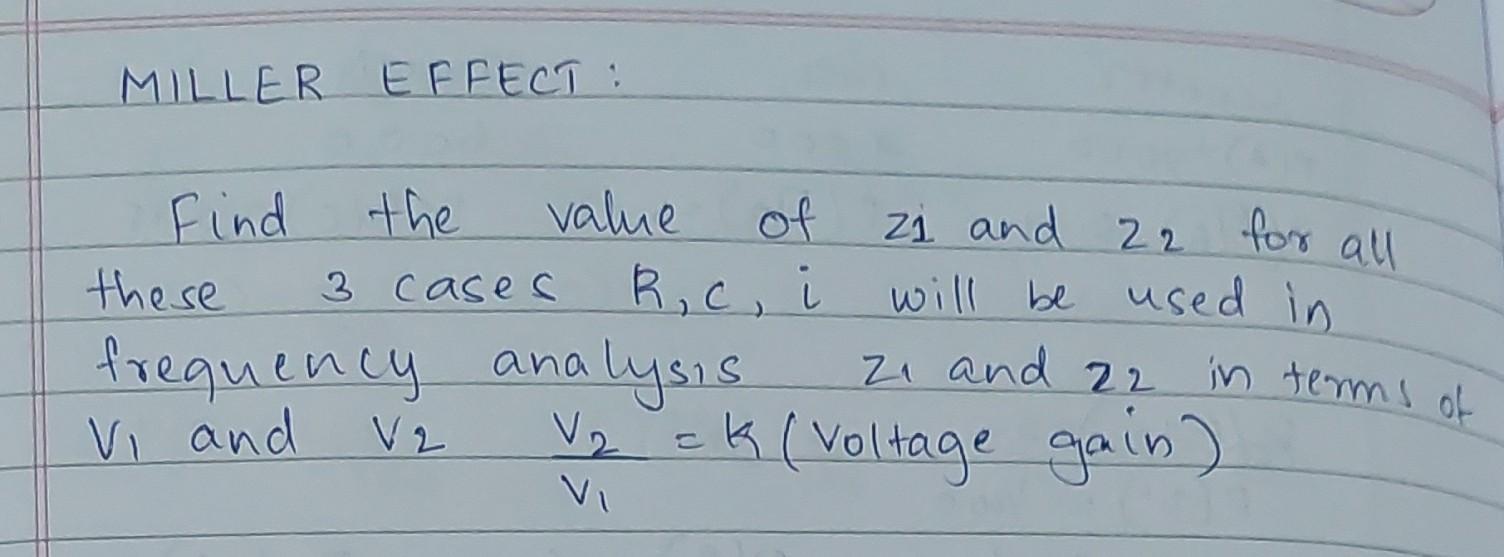 MILLER EFFECT:
Find the value of z1 and z2 for all
these 3 cases R, c, i will be used in
frequency analysis z1 and z2 in terms of
V1 and V2 V2/V1 = K (Voltage gain)